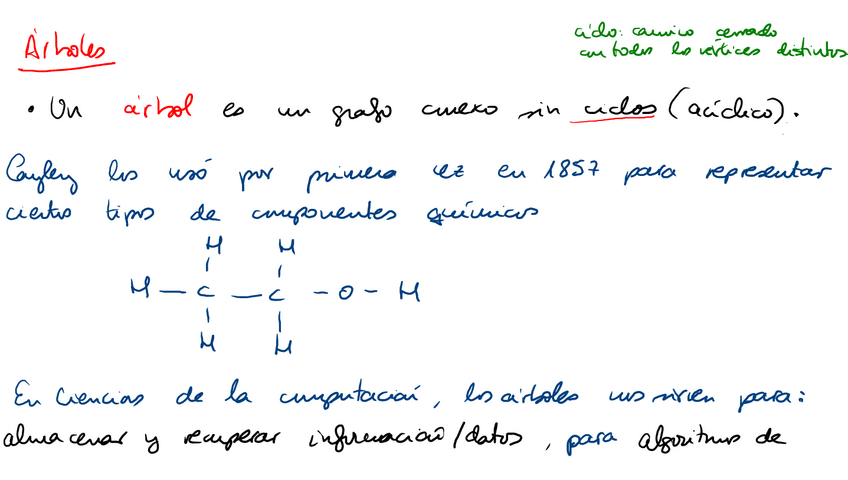 Árboles
ciclo: camino cerrado
con todos los vértices distintos
• Un árbol es un grafo conexo sin ciclos (acíclico).
Cayley los usó por primera vez en 1857 para representar
ciertos tipos de componentes químicos
H H
H — C — C — O — H
H H
En Ciencias de la computación, los árboles nos sirven para:
almacenar y recuperar información/datos, para algoritmos de